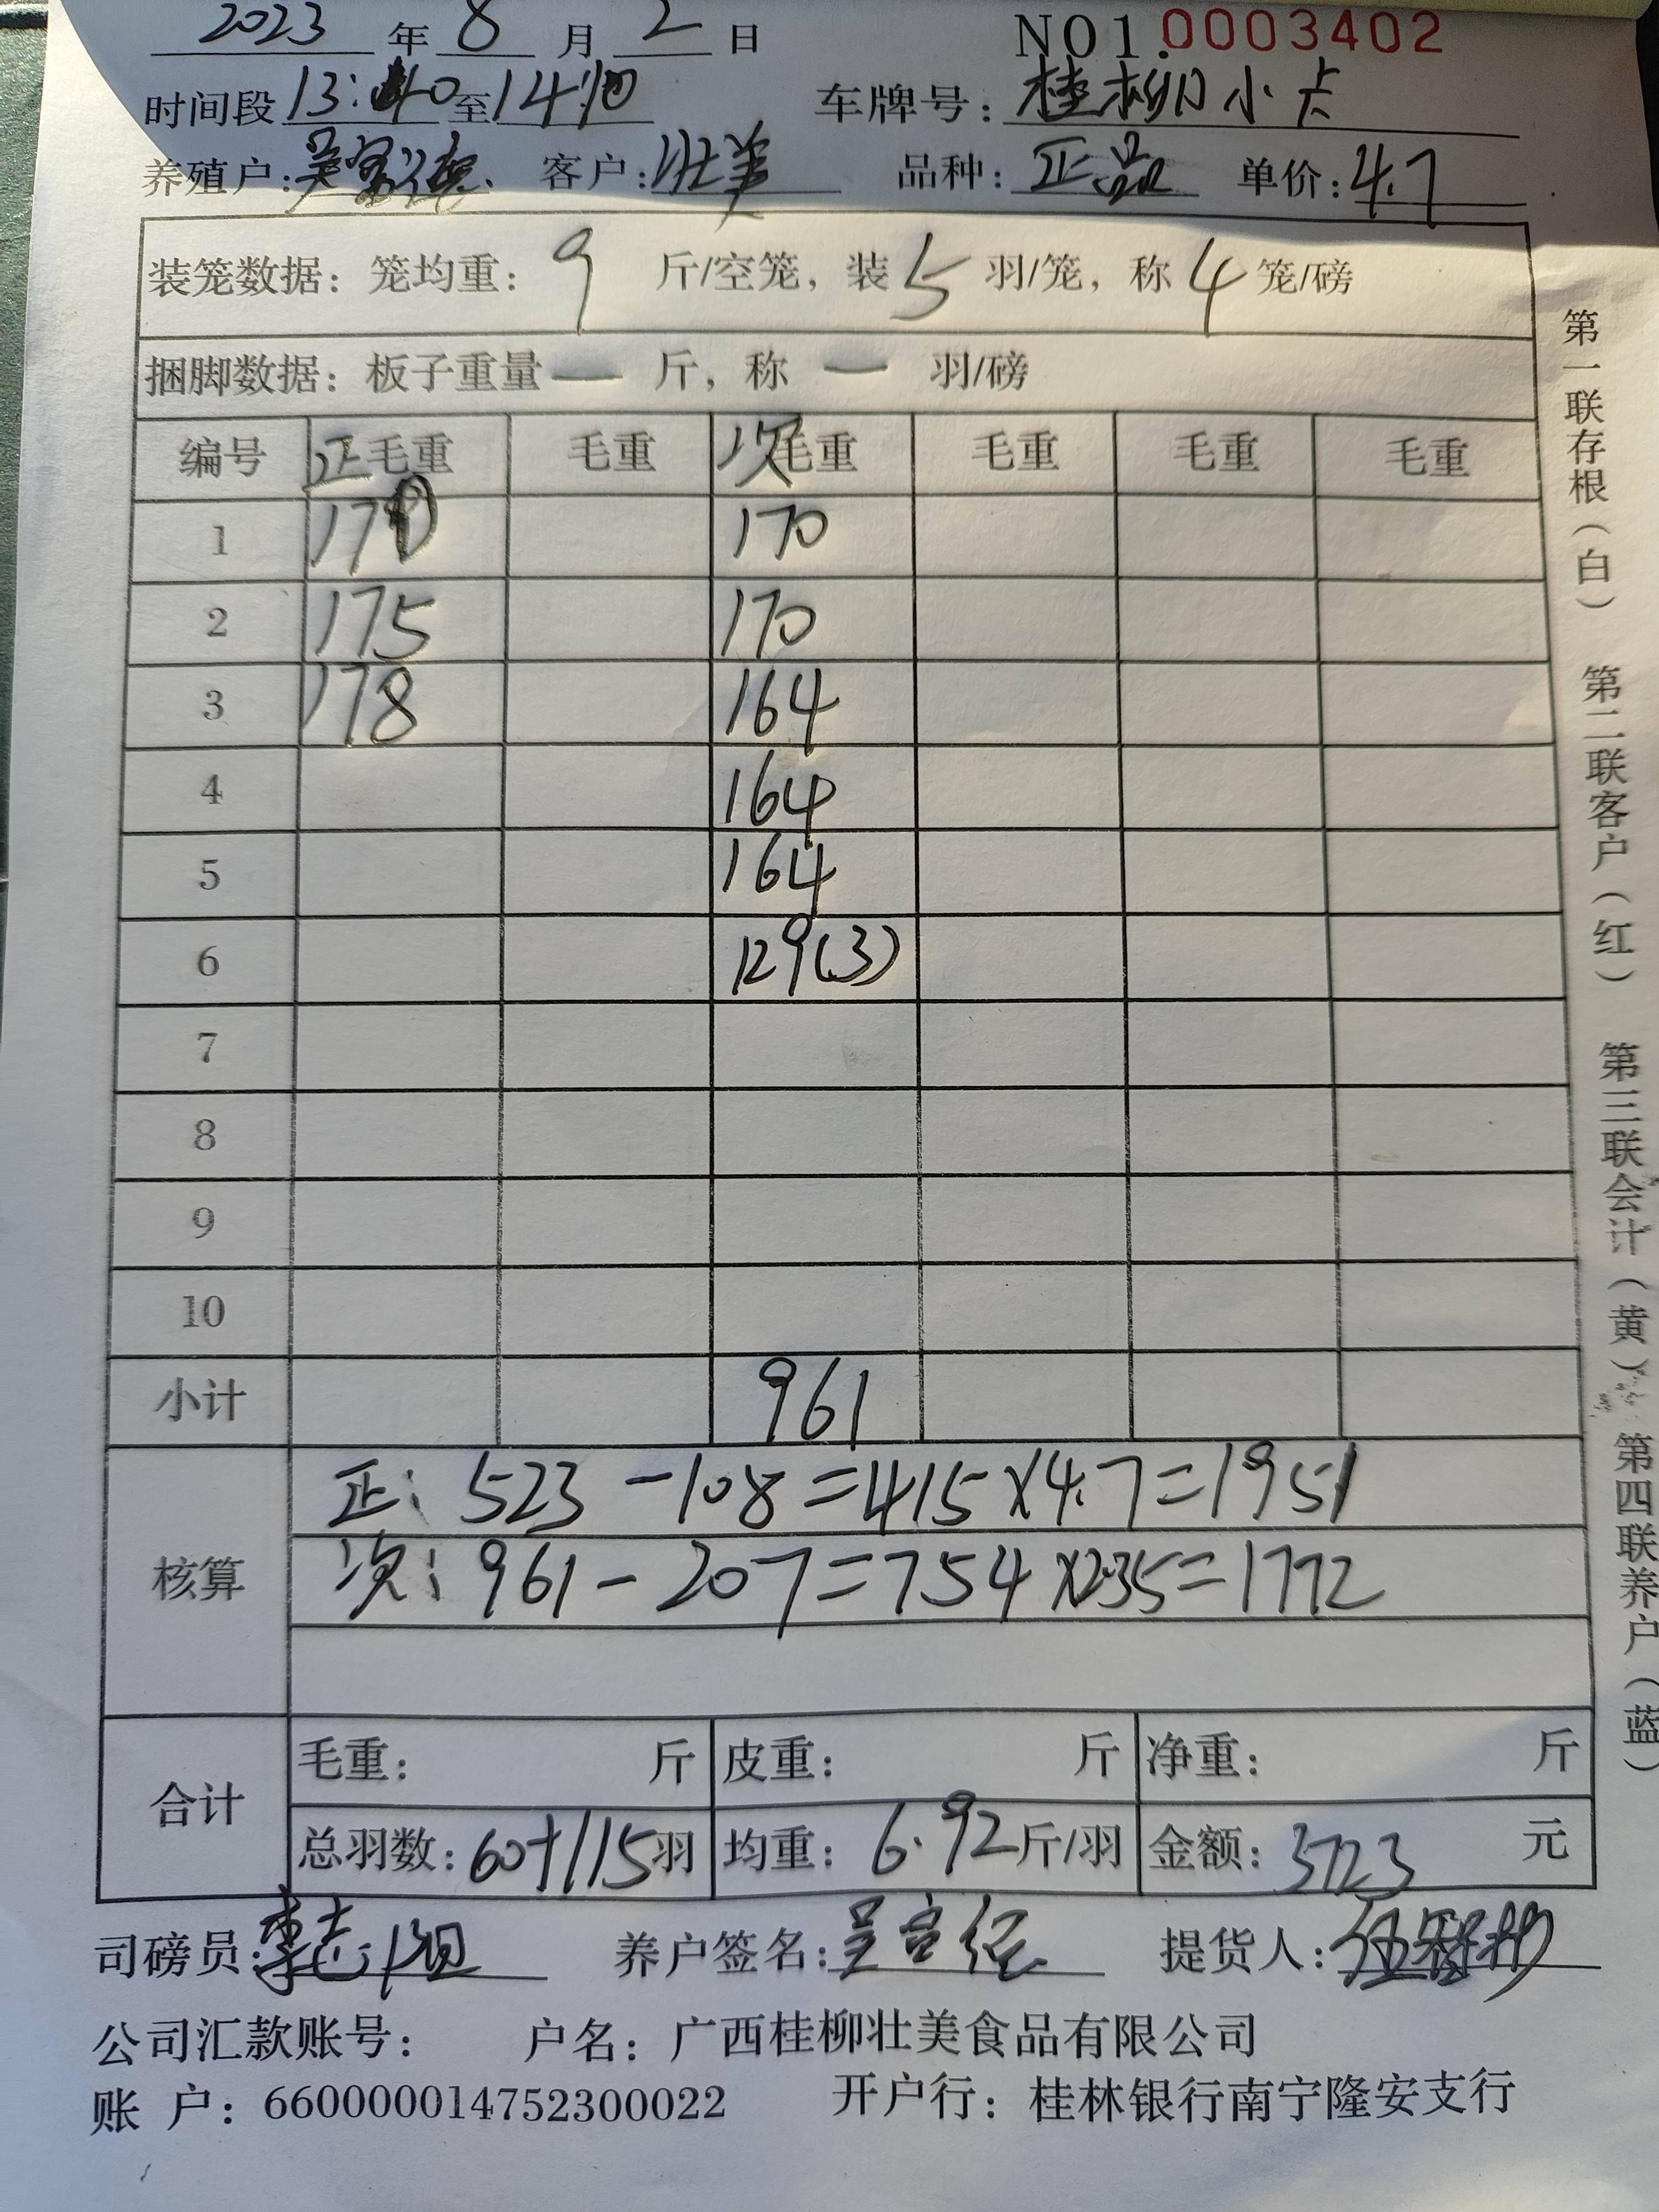 2023 年 8 月 2 日 NO1.0003402
时间段 13:40 至 14:10 车牌号: 桂柳小卡
养殖户: 客户: 壮美 品种: 正品 单价: 4.7
装笼数据: 笼均重: 9 斤/空笼, 装 5 羽/笼, 称 4 笼/磅
捆脚数据: 板子重量 — 斤, 称 — 羽/磅
编号 正毛重 毛重 次毛重 毛重 毛重 毛重
1 170 170
2 175 170
3 178 164
4 164
5 164
6 129(3)
7
8
9
10
小计 961
核算
正: 523 - 108 = 415 × 4.7 = 1951
次: 961 - 207 = 754 × 2.35 = 1772
合计
毛重: 斤 皮重: 斤 净重: 斤
总羽数: 60+115 羽 均重: 6.92 斤/羽 金额: 3723 元
司磅员: 养户签名: 提货人:
公司汇款账号: 户名: 广西桂柳壮美食品有限公司
账 户: 660000014752300022 开户行: 桂林银行南宁隆安支行
第一联存根(白) 第二联客户(红) 第三联会计(黄) 第四联养户(蓝)